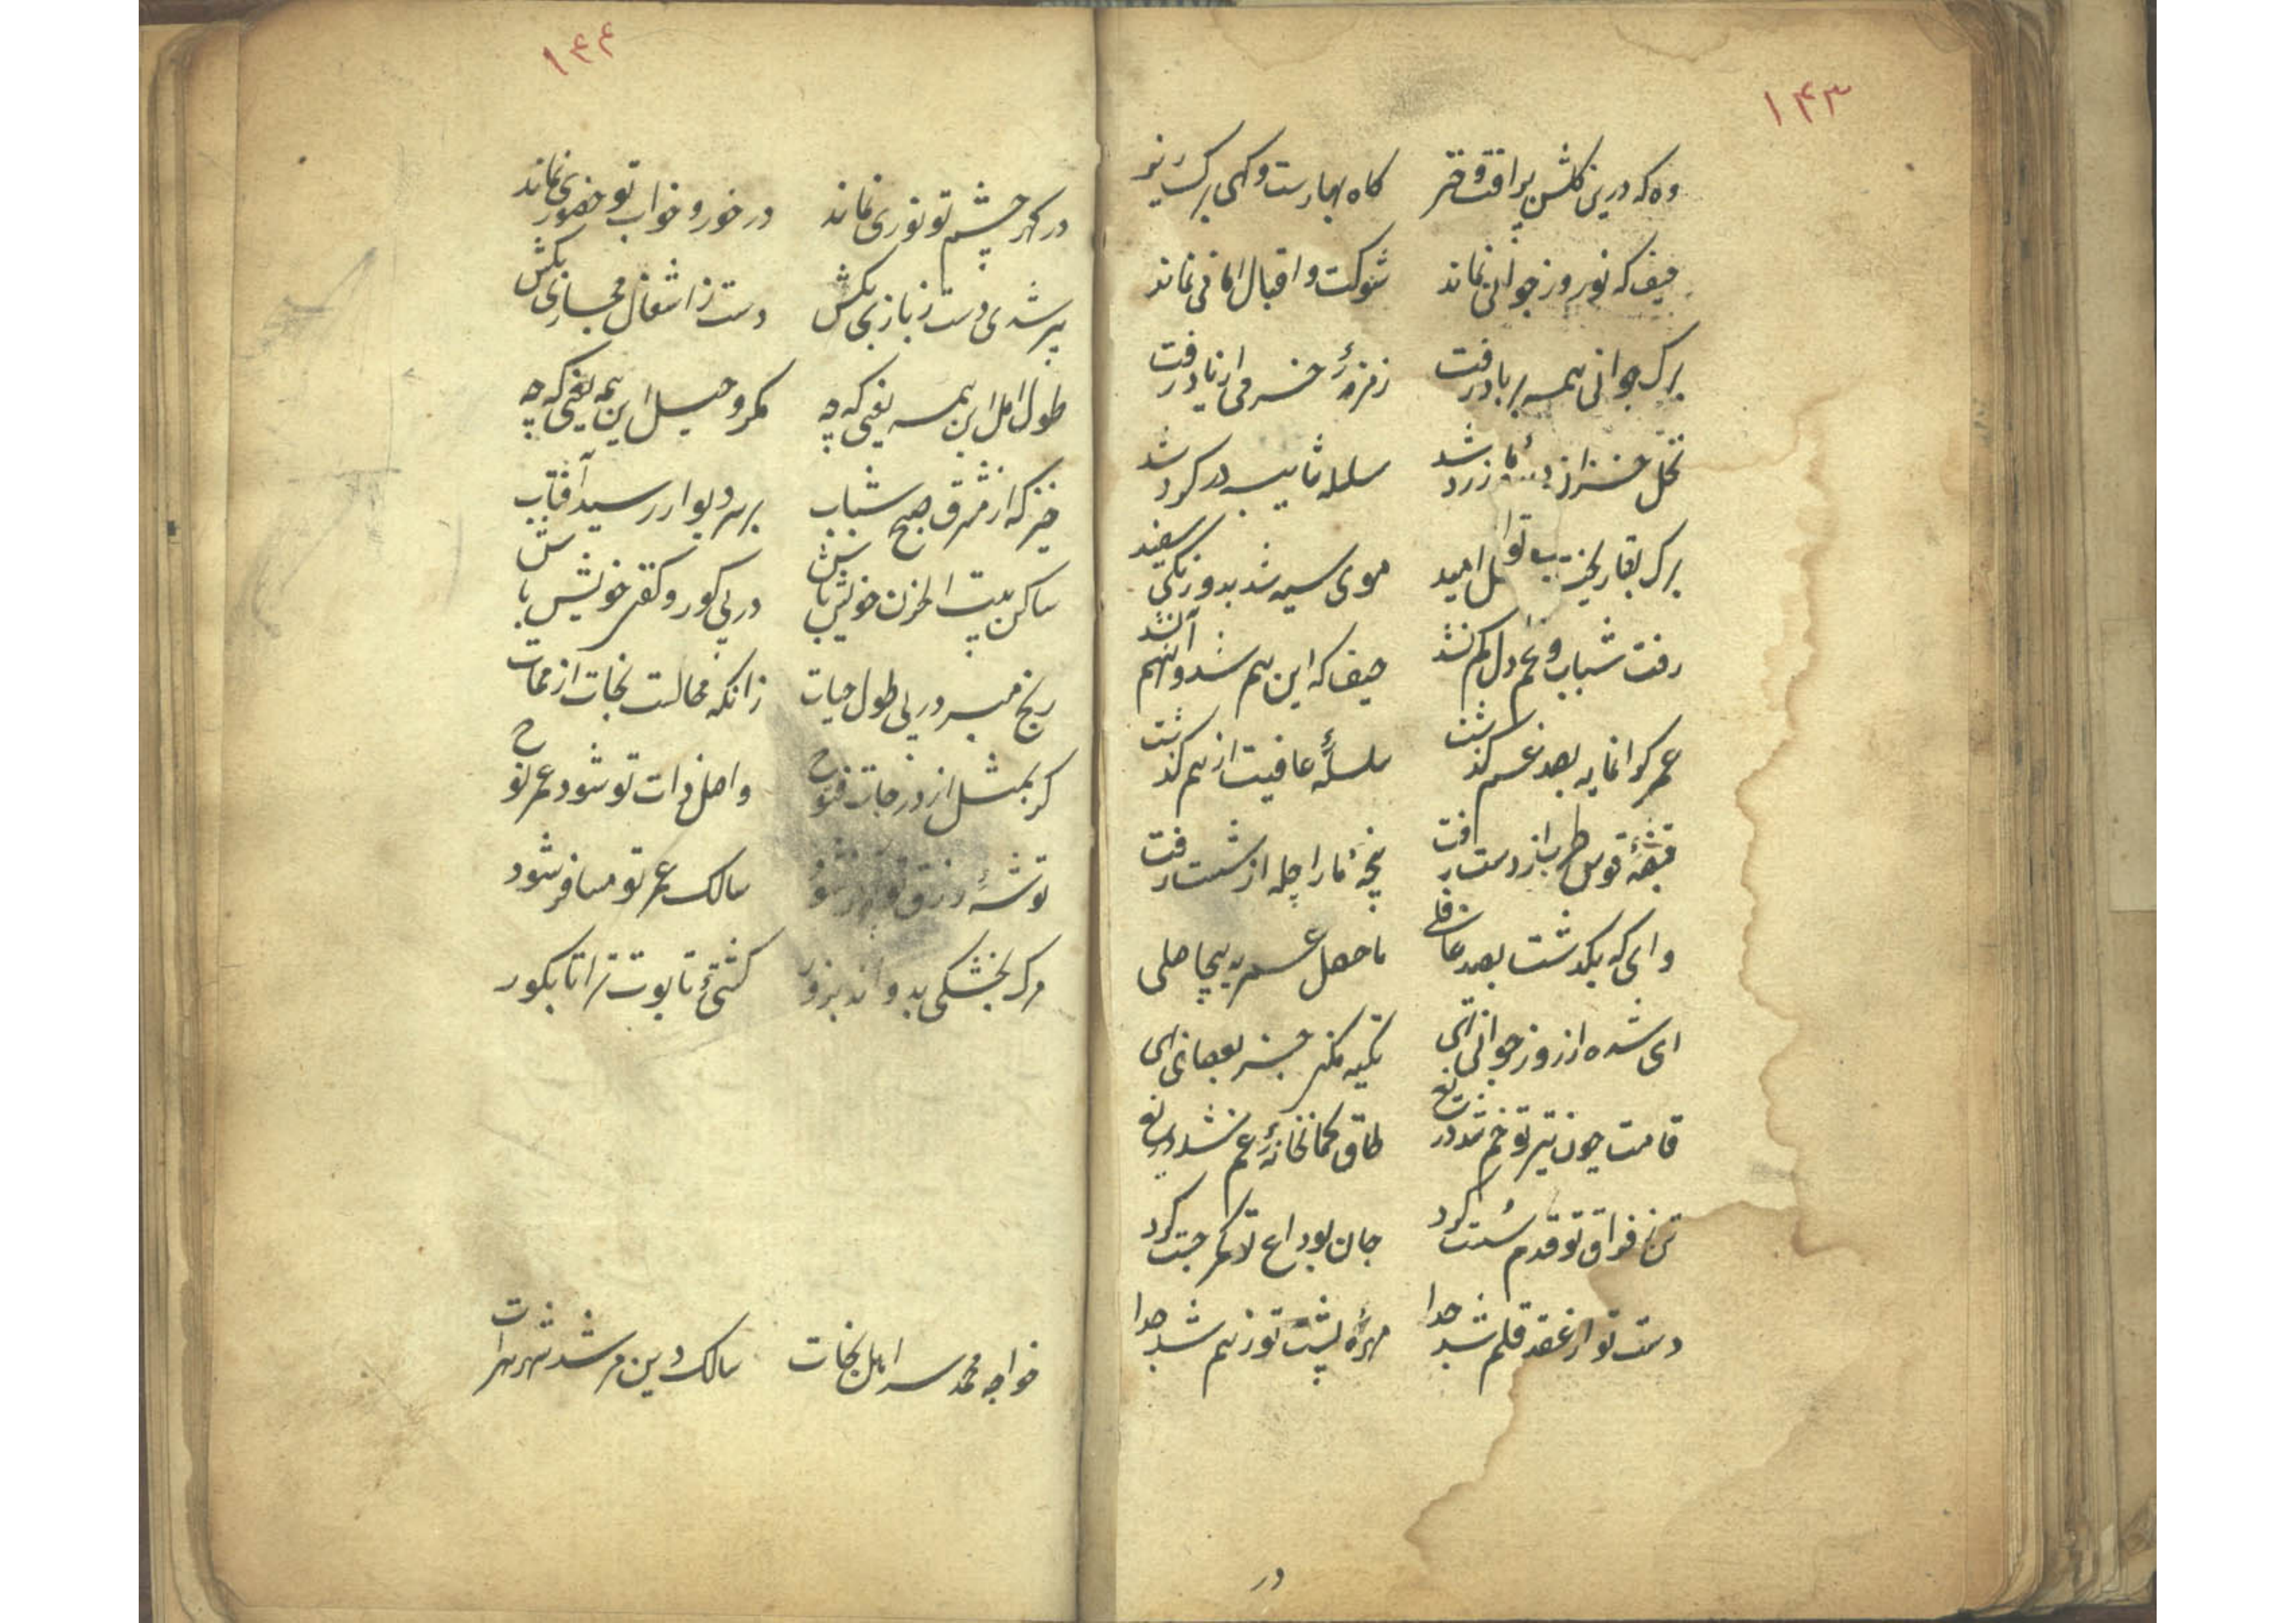 ۱۴۳
وه که درین گلشن پر افت و خر گاه بهارست و کهی برک ریز
حیف که نوروز جوانی نماند شوکت و اقبال امانی نماند
برک جوانی همه بر باد رفت زمزمهٔ خرمی از یاد رفت
نخل خزان دیدهٔ ما زرد شد سلسله تا شیب در کرد شد
برک بقا ریخت نخل امید موی سیه شد بدو زنکی سفید
رفت شباب و غم دل کم نشد حیف که این هم شد و آنهم نشد
عمر کرانمایه بصد غم گذشت سلسلهٔ عافیت از هم گذشت
قبضهٔ قوس طرب از دست رفت پنجهٔ ما را چله از شست رفت
وای که بگذشت بصد غافلی ماحصل عمر به بیحاصلی
ای شده از روز جوانی تکیه مکن جز بعصای
قامت چون تیر تو خم شد دریغ طاق کمانخانهٔ غم شد دریغ
تن ز فراق تو قدم سست کرد جان بوداع تو کمر چست کرد
دست تو از عقد قلم شد جدا مهرهٔ پشت تو ز هم شد جدا
در
۱۴۴
در کهر چشم تو نوری نماند در خور و خواب تو حضوری نماند
پیر شدی دست ز بازی بکش دست ز اشغال مجازی بکش
طول امل این همه یعنی که چه مکر و حیل این همه یعنی که چه
خیز که از مشرق صبح شباب بر سر دیوار رسید آفتاب
ساکن بیت الحزن خویش باش در پی کور و کفن خویش باش
رنج مبر در پی طول حیات زانکه محالست نجات از ممات
کر بمثل از درجات فتوح واصل ذات تو شود عمر نوح
توشهٔ رزق تو شود سالک عمر تو مسافر شود
مرک بخشکی بدواند بزور کشتیٔ تابوت ترا تا بکور
خواجه محمد سر اهل نجات سالک دین مرشد شهر هرات